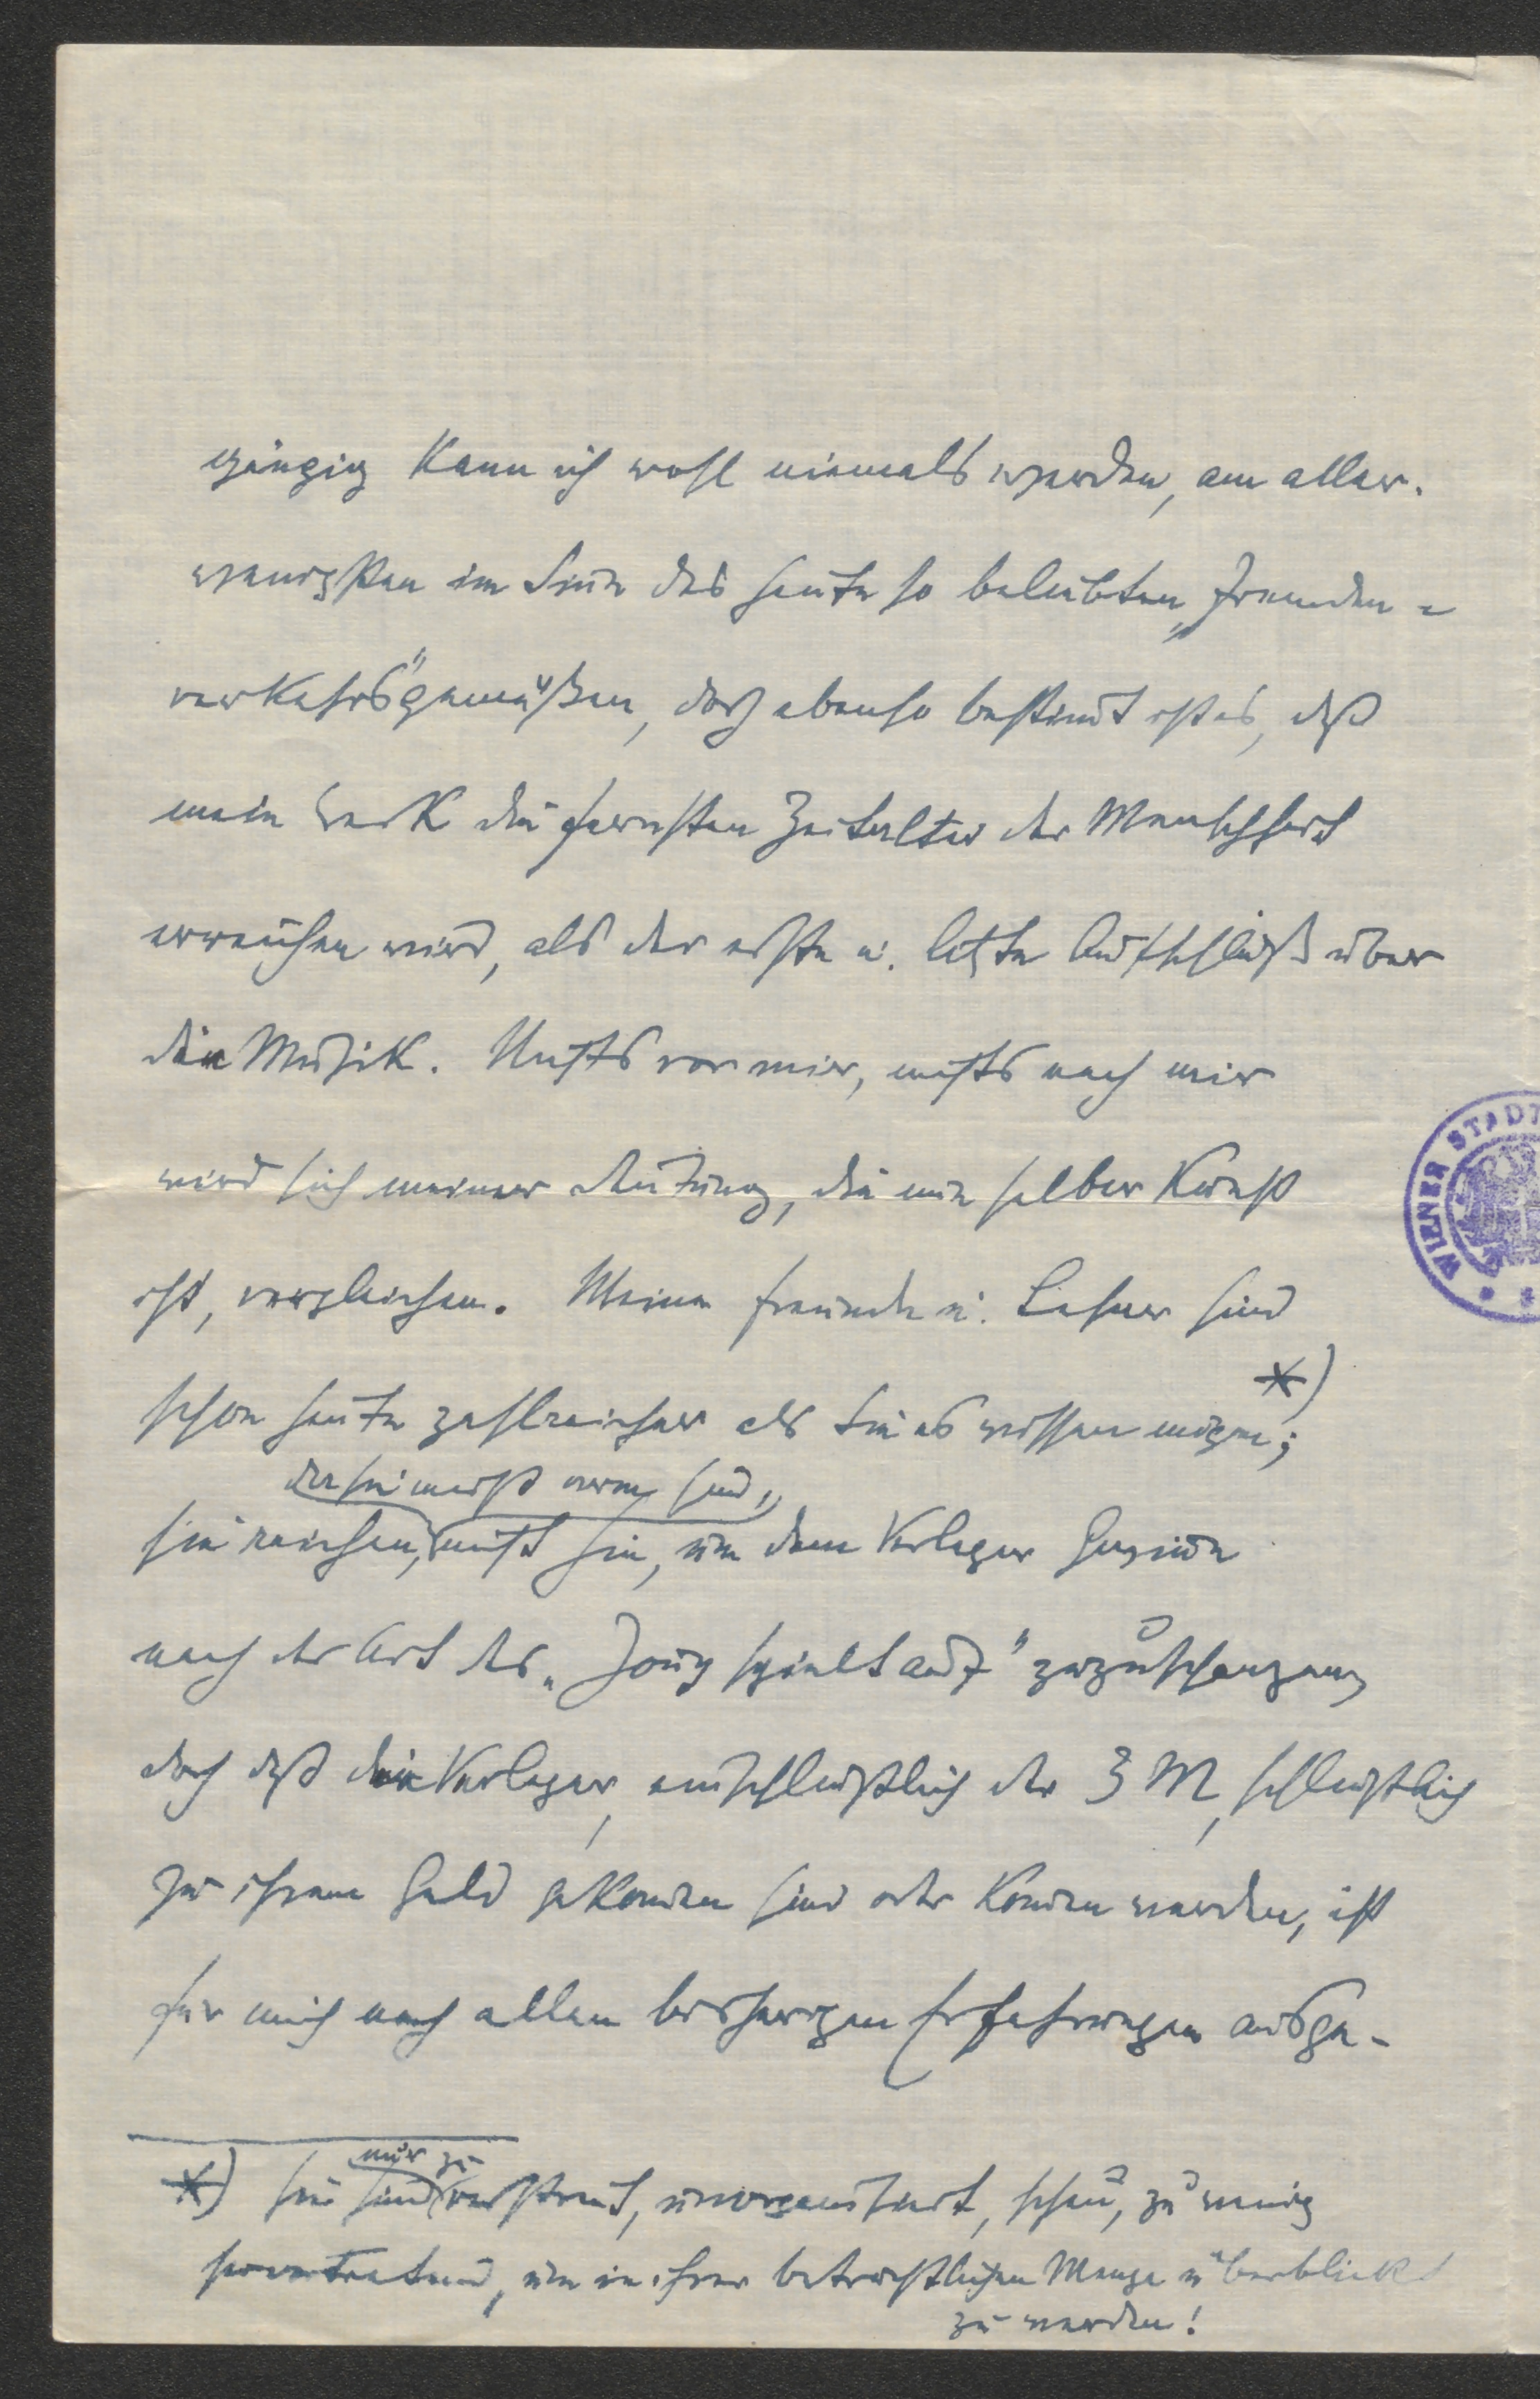 gängig kann ich wohl niemals werden, am aller-
wenigsten im Sinn des heute so beliebten „Fremden=
verkehrs"gemäßen, doch ebenso bestimt ist es, daß
mein Werk die fernsten Zeitalter der Menschheit
erreichen wird, als der erste u. letzte Aufschluß über
die Musik. Nichts vor mir, nichts nach mir
wird sich meiner Deutung, die mir selber Kunst
ist, vergleichen. Meine Freunde u. Leser sind
schon heute zahlreicher als Sie es wissen mögen; *)
da sie meist arm sind,
sie reichen, nicht hin, um dem Verleger Gewinn
nach der Art des „Jonny spielt auf" zuzuschanzen,
doch daß die Verleger, einschließlich der 3 M, schließlich
zu ihrem Geld gekomen sind oder komen werden, ist
für mich nach allen bisherigen Erfahrungen ausge-
nur zu
*) sie sind verstreut, unorganisiert, scheu, zu wenig
hervortretend, um in ihrer beträchtlichen Menge überblickt
zu werden!
WIENER STADT